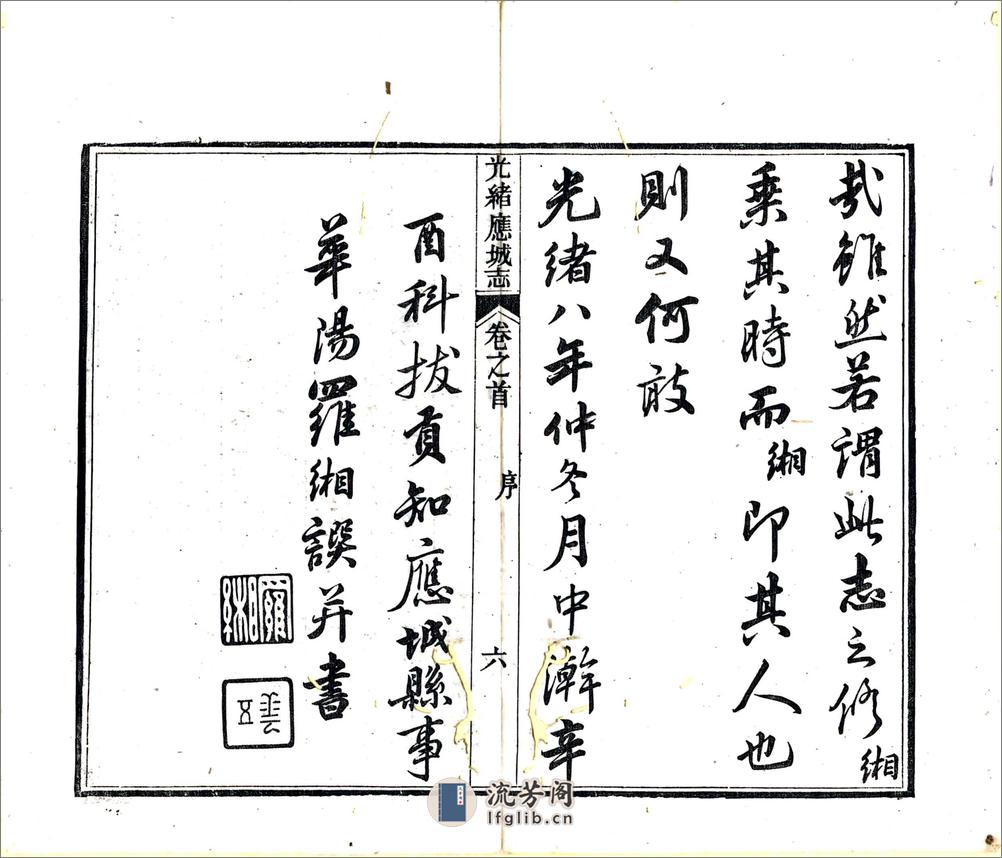 哉雖然若謂此志之修緗
乘其時而緗即其人也
則又何敢
光緒八年仲冬月中澣辛
光緒應城志
卷之首
序
六
酉科拔貢知應城縣事
華陽羅緗譔并書
羅緗
流芳阁
lfglib.cn